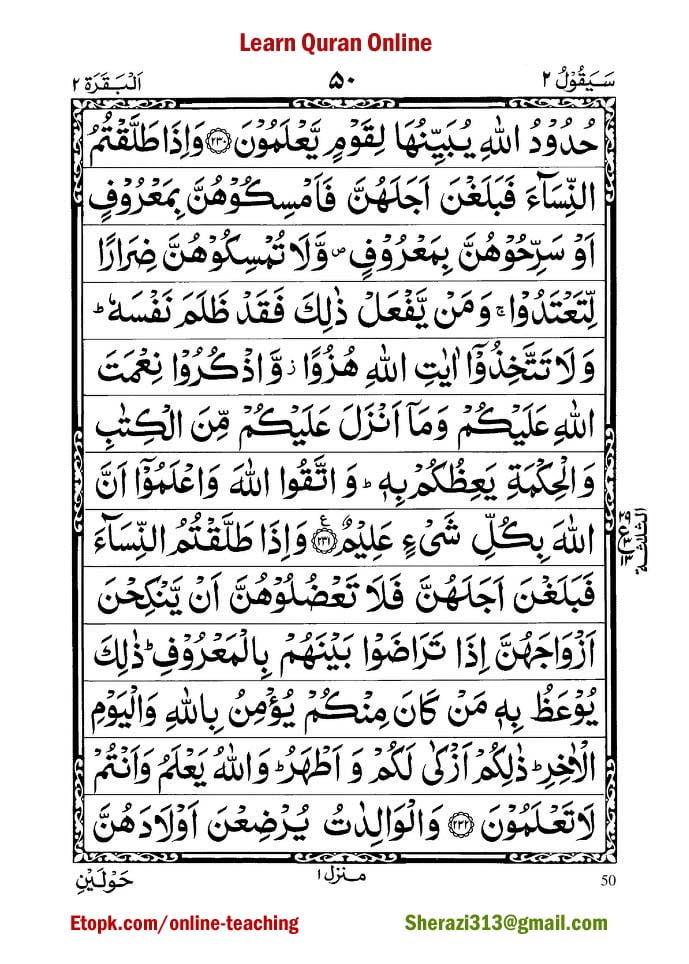 Learn Quran Online
سَيَقُوۡلُ ٢
۵۰
اَلۡبَقَرَة ٢
حُدُوۡدُ اللّٰهِ يُبَيِّنُهَا لِقَوۡمٍ يَّعۡلَمُوۡنَ ﴿۲۳۰﴾ وَاِذَا طَلَّقۡتُمُ
النِّسَآءَ فَبَلَغۡنَ اَجَلَهُنَّ فَاَمۡسِكُوۡهُنَّ بِمَعۡرُوۡفٍ
اَوۡ سَرِّحُوۡهُنَّ بِمَعۡرُوۡفٍ ۖ وَّلَا تُمۡسِكُوۡهُنَّ ضِرَارًا
لِّتَعۡتَدُوۡا ۚ وَمَنۡ يَّفۡعَلۡ ذٰلِكَ فَقَدۡ ظَلَمَ نَفۡسَهٗ ؕ
وَلَا تَتَّخِذُوۡٓا اٰيٰتِ اللّٰهِ هُزُوًا ز وَّاذۡكُرُوۡا نِعۡمَتَ
اللّٰهِ عَلَيۡكُمۡ وَمَآ اَنۡزَلَ عَلَيۡكُمۡ مِّنَ الۡكِتٰبِ
وَالۡحِكۡمَةِ يَعِظُكُمۡ بِهٖ ؕ وَاتَّقُوا اللّٰهَ وَاعۡلَمُوۡٓا اَنَّ
اللّٰهَ بِكُلِّ شَىۡءٍ عَلِيۡمٌ ﴿۲۳۱﴾ ع وَاِذَا طَلَّقۡتُمُ النِّسَآءَ
فَبَلَغۡنَ اَجَلَهُنَّ فَلَا تَعۡضُلُوۡهُنَّ اَنۡ يَّنۡكِحۡنَ
اَزۡوَاجَهُنَّ اِذَا تَرَاضَوۡا بَيۡنَهُمۡ بِالۡمَعۡرُوۡفِ ؕ ذٰلِكَ
يُوۡعَظُ بِهٖ مَنۡ كَانَ مِنۡكُمۡ يُؤۡمِنُ بِاللّٰهِ وَالۡيَوۡمِ
الۡاٰخِرِ ؕ ذٰلِكُمۡ اَزۡكٰى لَكُمۡ وَاَطۡهَرُ ؕ وَاللّٰهُ يَعۡلَمُ وَاَنۡتُمۡ
لَا تَعۡلَمُوۡنَ ﴿۲۳۲﴾ وَالۡوَالِدٰتُ يُرۡضِعۡنَ اَوۡلَادَهُنَّ
الثلثة
50
منزل ١
حَوۡلَيۡنِ
Etopk.com/online-teaching
Sherazi313@gmail.com